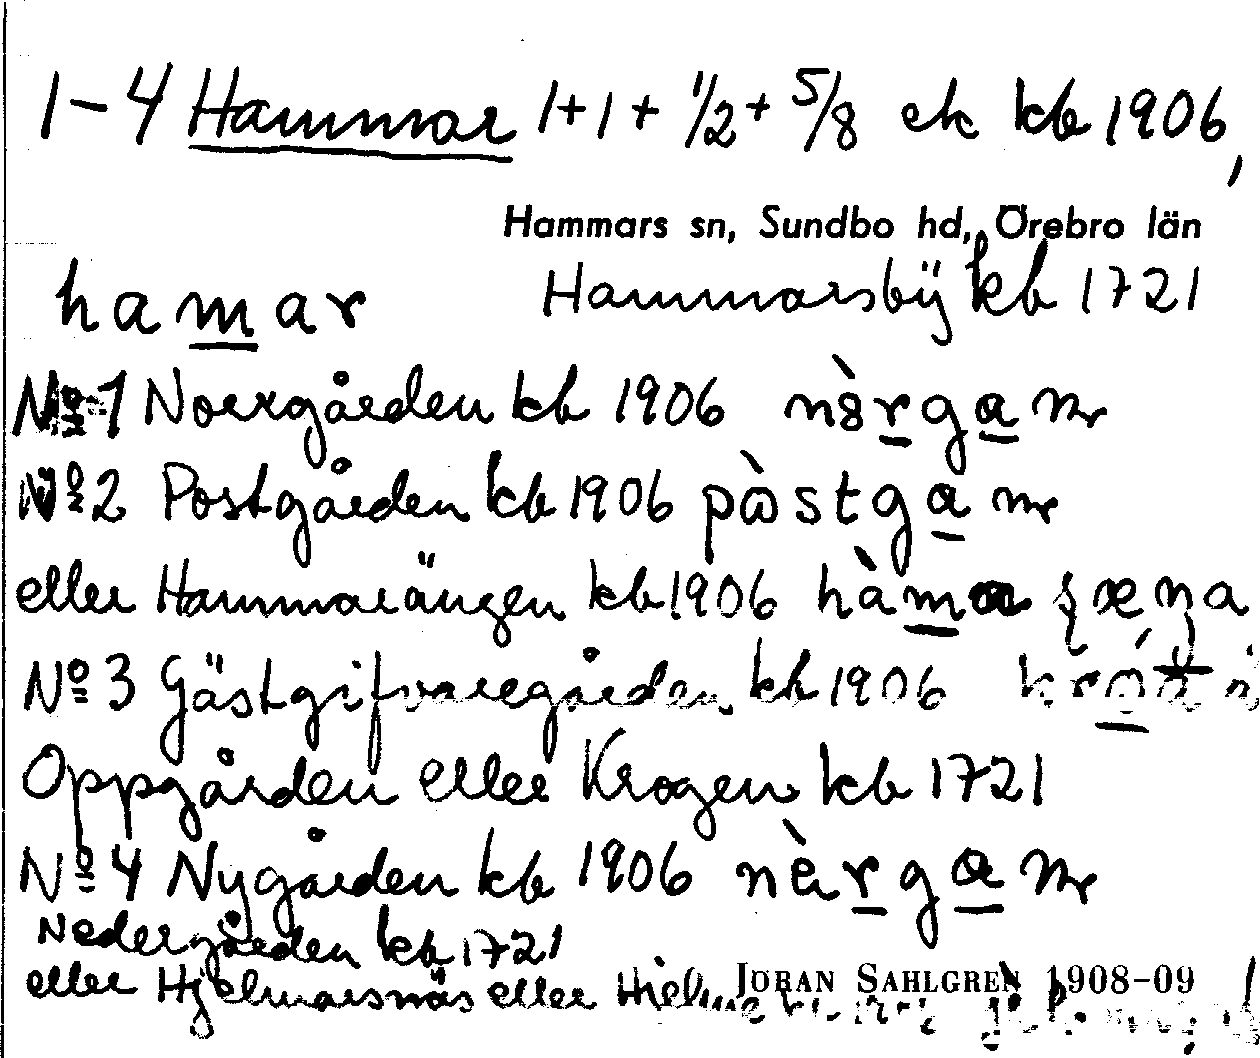 1-4 Hammar 1+1+ 1/2+ 5/8 ek kb 1906,
Hammars sn, Sundbo hd, Örebro län
hamar Hammarsbÿ kb 1721
No 1 Norrgården kb 1906
No 2 Postgården kb 1906
eller Hammarängen kb 1906
No 3 Gästgifvaregården kb 1906
Oppgården eller Krogen kb 1721
No 4 Nygården kb 1906
Nedergården kb 1721
eller Hjelmarsnäs eller
JÖRAN SAHLGREN 1908-09